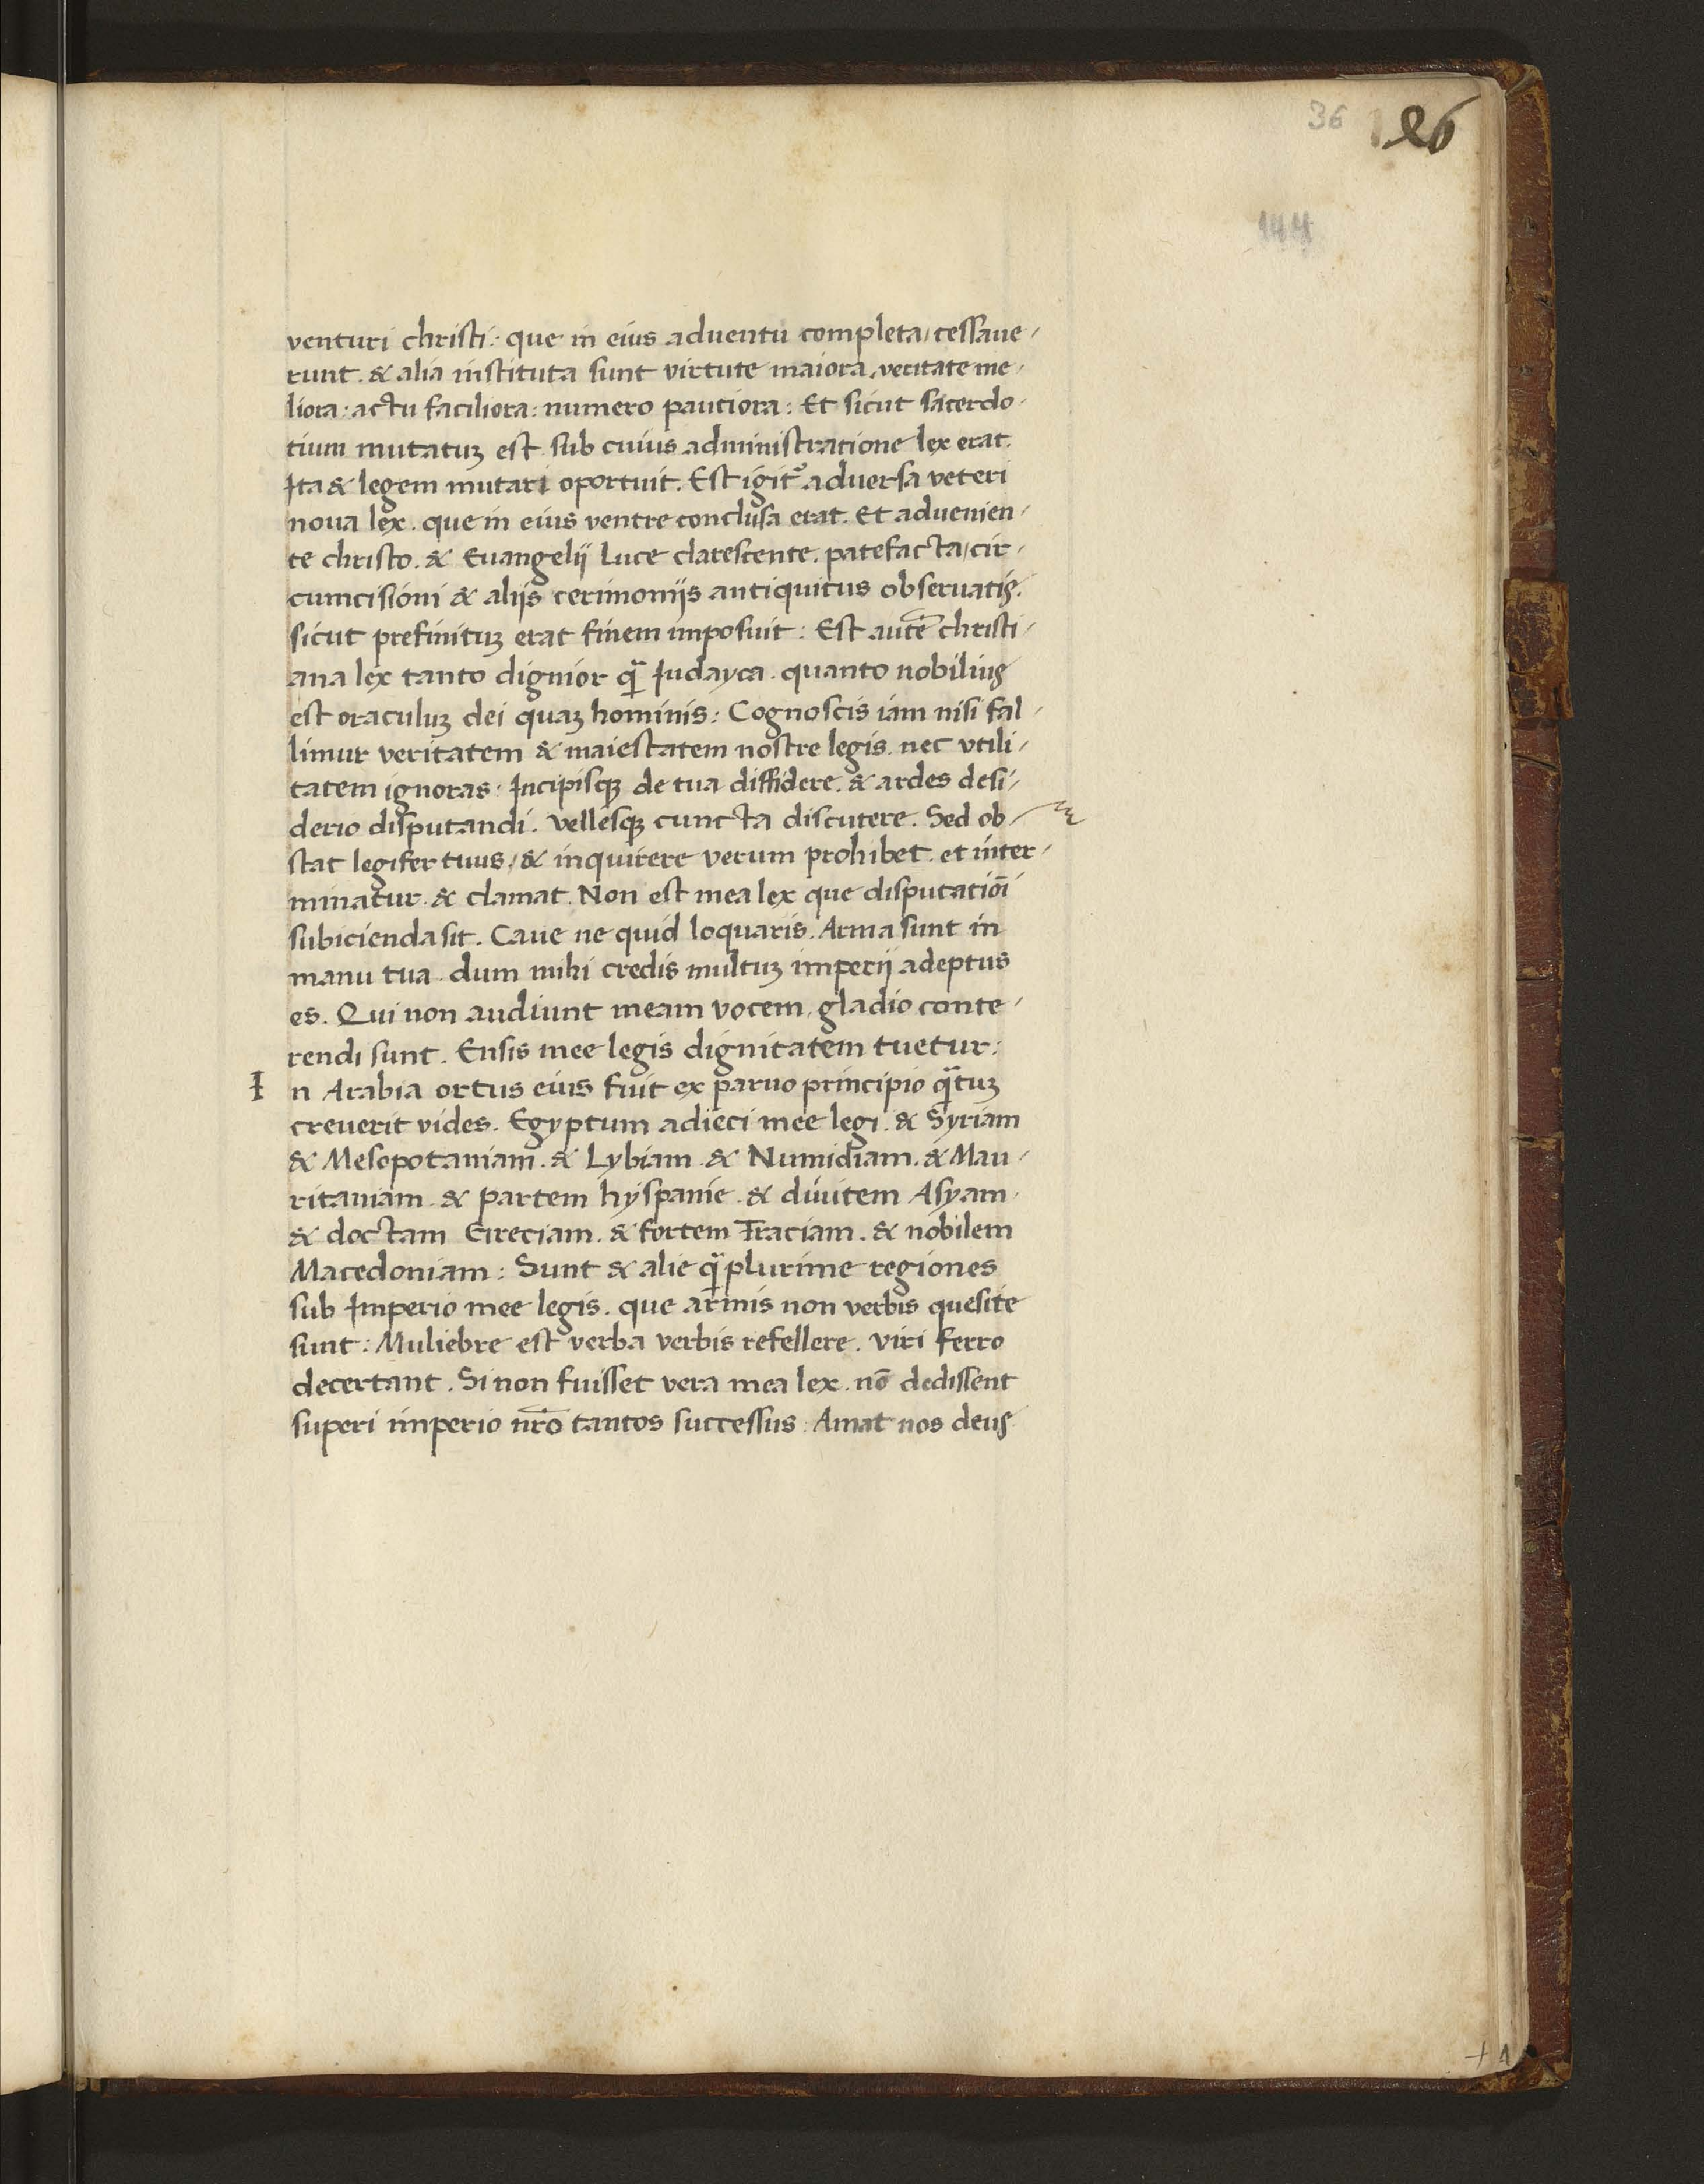 36 126
144
venturi christi: que in eius aduentu completa, cessaue-
runt. & alia instituta sunt virtute maiora, veritate me-
liora: actu faciliora: numero pauciora: Et sicut sacerdo-
tium mutatuʒ est sub cuius administratione lex erat.
Ita & legem mutari oportuit. Est igit᷑ aduersa veteri
noua lex. que in eius ventre conclusa erat. Et aduenien-
te christo. & Euangelij luce clarescente. patefacta, cir-
cumcisioni & alijs cerimonijs antiquitus obseruatis.
sicut prefinituʒ erat finem imposuit: Est autē christi-
ana lex tanto dignior q̄ Iudayca. quanto nobilius
est oraculuʒ dei quaʒ hominis: Cognoscis iam nisi fal-
limur veritatem & maiestatem nostre legis. nec vtili-
tatem ignoras. Incipisqʒ de tua diffidere. & ardes desi-
derio disputandi. Vellesqʒ cuncta discutere. Sed ob-
stat legifer tuus, & inquirere verum prohibet. et inter-
minatur. & clamat. Non est mea lex que disputatiōi
subicienda sit. Caue ne quid loquaris. Arma sunt in
manu tua. dum mihi credis multuʒ imperij adeptus
es. Qui non audiunt meam vocem, gladio conte-
rendi sunt. Ensis mee legis dignitatem tuetur:
I n Arabia ortus eius fuit ex paruo principio q̄tuʒ
creuerit vides. Egyptum adieci mee legi. & Syriam
& Mesopotamiam. & Lybiam. & Numidiam. & Mau-
ritaniam. & partem hyspanie. & diuitem Asyam.
& doctam Greciam. & fortem Traciam. & nobilem
Macedoniam: Sunt & alie q̄plurime regiones
sub Imperio mee legis. que armis non verbis quesite
sunt: Muliebre est verba verbis refellere. viri ferro
decertant. Si non fuisset vera mea lex. nō dedissent
superi imperio nr̄o tantos successus: Amat nos deus